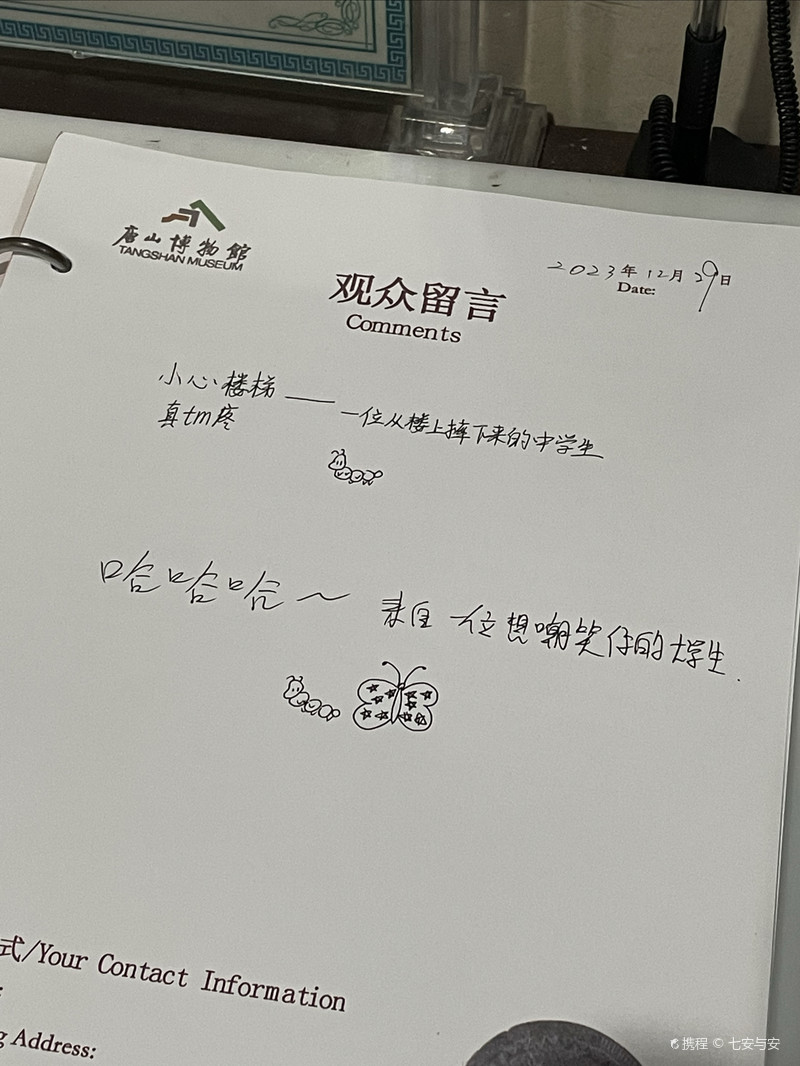 唐山博物館
TANGSHAN MUSEUM
2023年12月29日
Date:
观众留言
Comments
小心楼梯——一位从楼上摔下来的中学生
真tm疼
哈哈哈～ 来自一位想嘲笑你的大学生.
式/Your Contact Information
:
g Address:
携程 © 七安与安